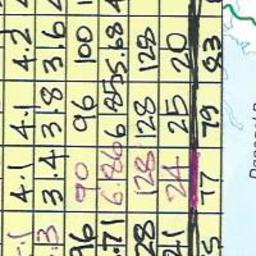 4.1 4.1 4.2
3.4 3.8 3.6
96 90 96 100
.71 6.86 6.85 5.68
28 128 128 128
21 24 25 20
77 79 83